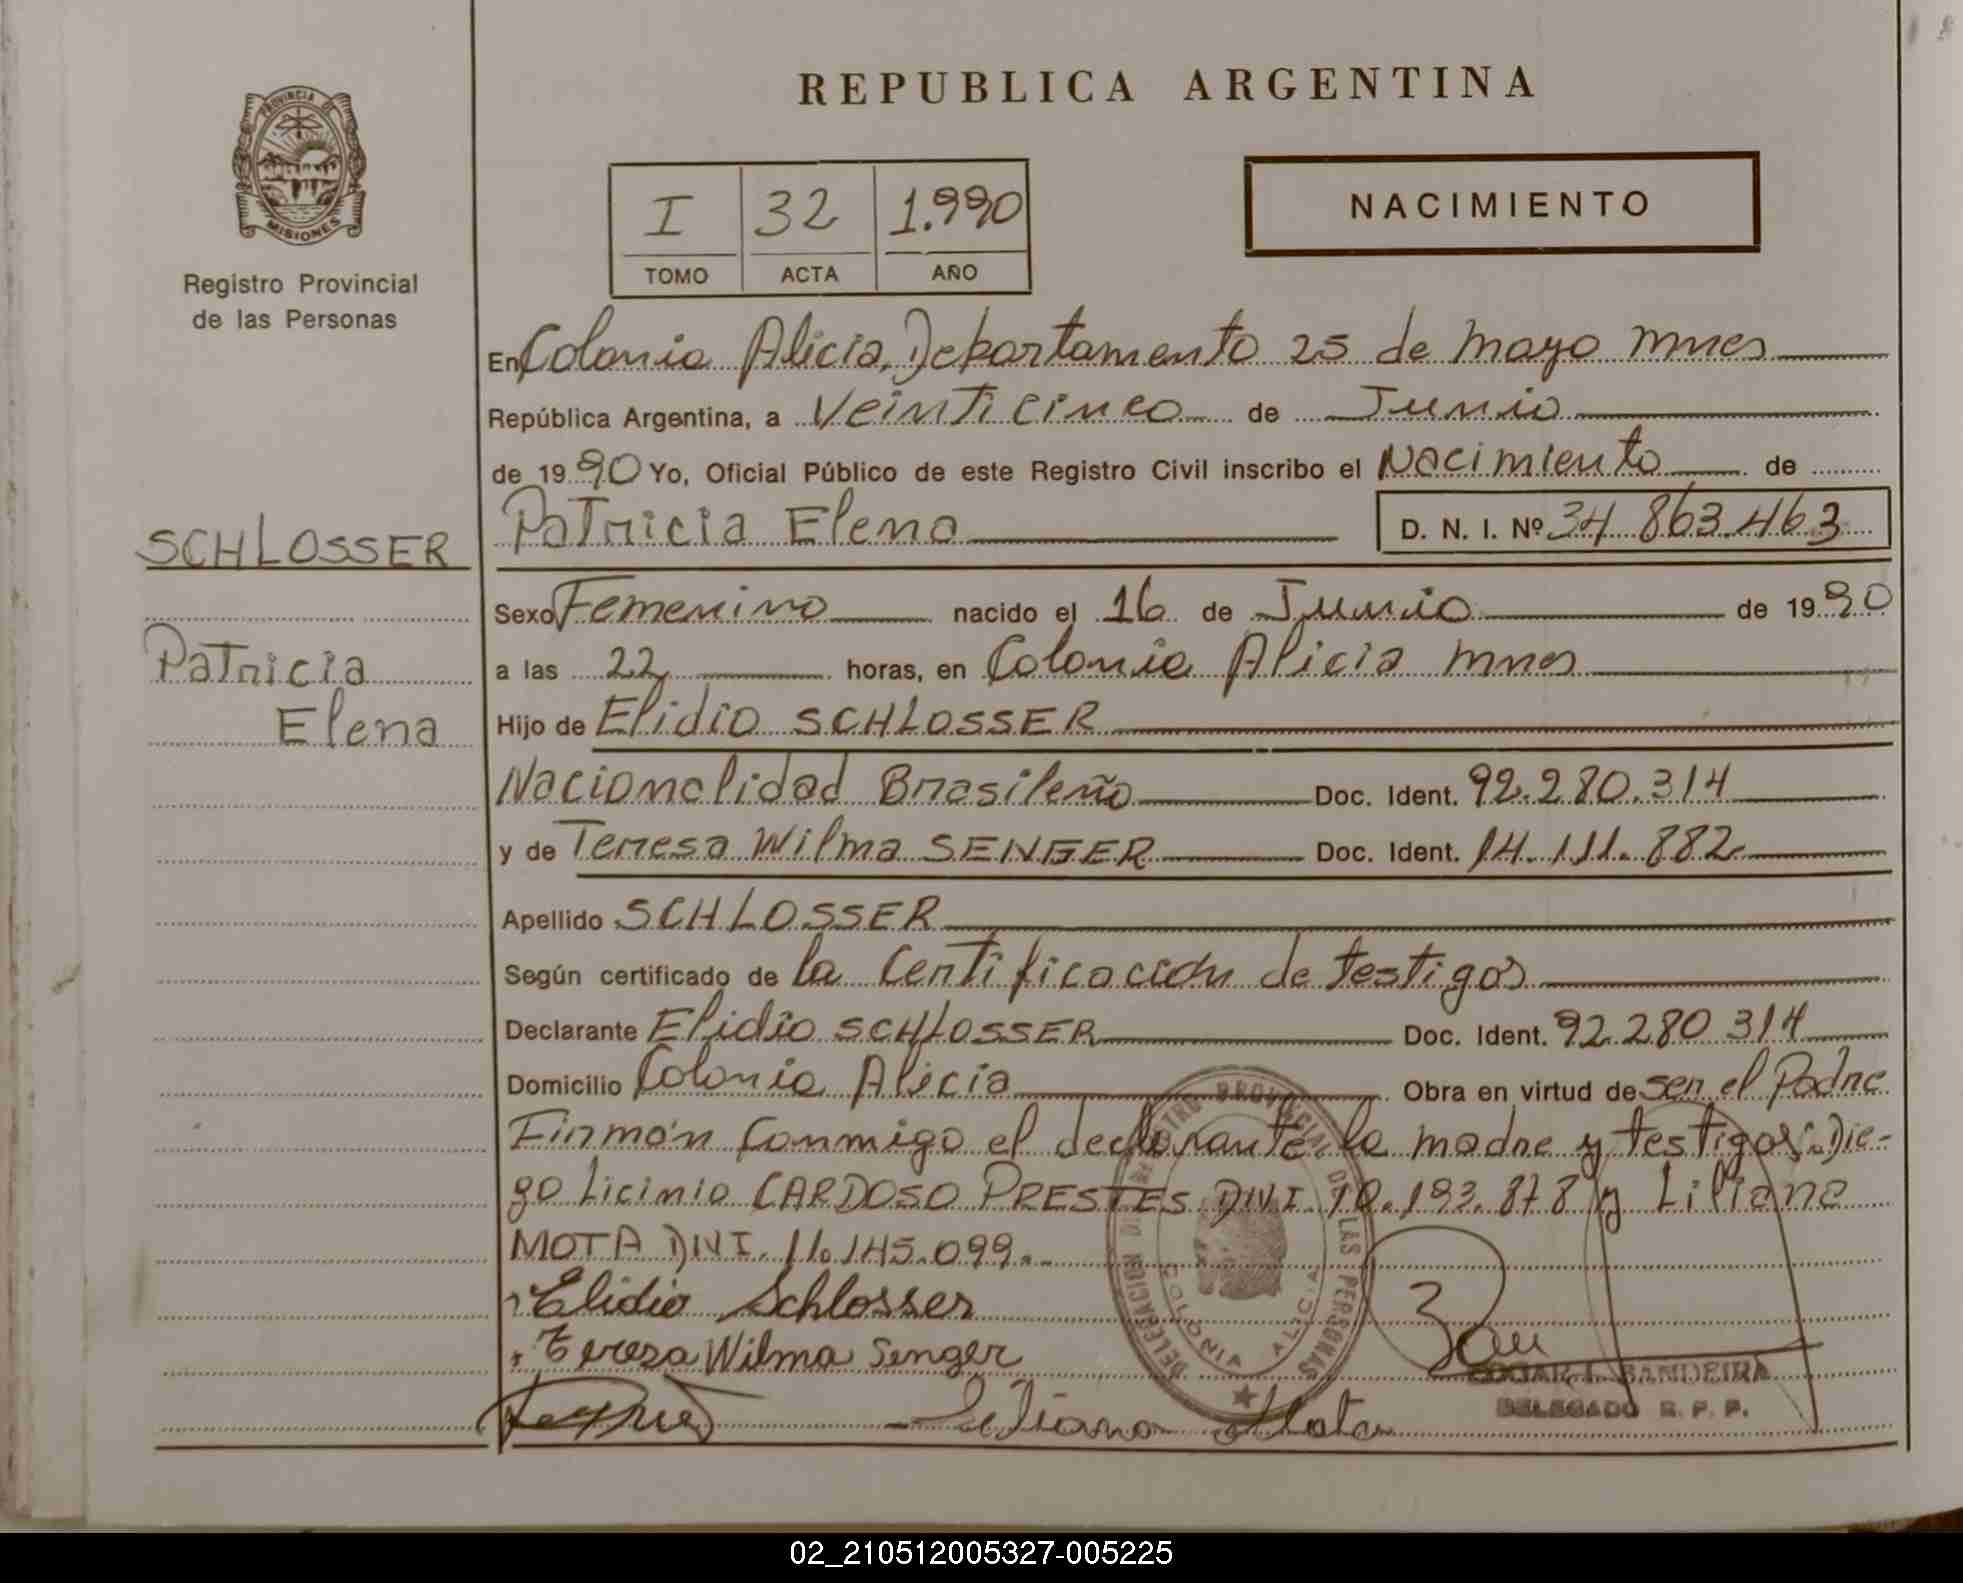 REPUBLICA ARGENTINA
PROVINCIA DE
MISIONES
Registro Provincial
de las Personas
I 32 1.990
TOMO ACTA AÑO
NACIMIENTO
En Colonia Alicia, Departamento 25 de Mayo Mnes
República Argentina, a Veinticinco de Junio
de 1990 Yo, Oficial Público de este Registro Civil inscribo el Nacimiento de
SCHLOSSER
Patricia Elena
D. N. I. Nº 34.863.463
Sexo Femenino nacido el 16 de Junio de 1990
Patricia
Elena
a las 22 horas, en Colonia Alicia Mnes
Hijo de Elidio SCHLOSSER
Nacionalidad Brasileño Doc. Ident. 92.280.314
y de Teresa Wilma SENGER Doc. Ident. 14.111.882
Apellido SCHLOSSER
Según certificado de la Certificación de testigos
Declarante Elidio SCHLOSSER Doc. Ident. 92.280.314
Domicilio Colonia Alicia Obra en virtud de ser el Padre
Firmán conmigo el declarante, la madre y testigos: Die-
go Licinio CARDOSO PRESTES DNI. 10.193.878 y Liliana
MOTA DNI. 11.145.099.
Elidio Schlosser
Teresa Wilma Senger
Liliana Mota
DELEGACION DEL REGISTRO PROVINCIAL DE LAS PERSONAS
COLONIA ALICIA
EDGAR L. BANDEIRA
DELEGADO R. P. P.
02_210512005327-005225